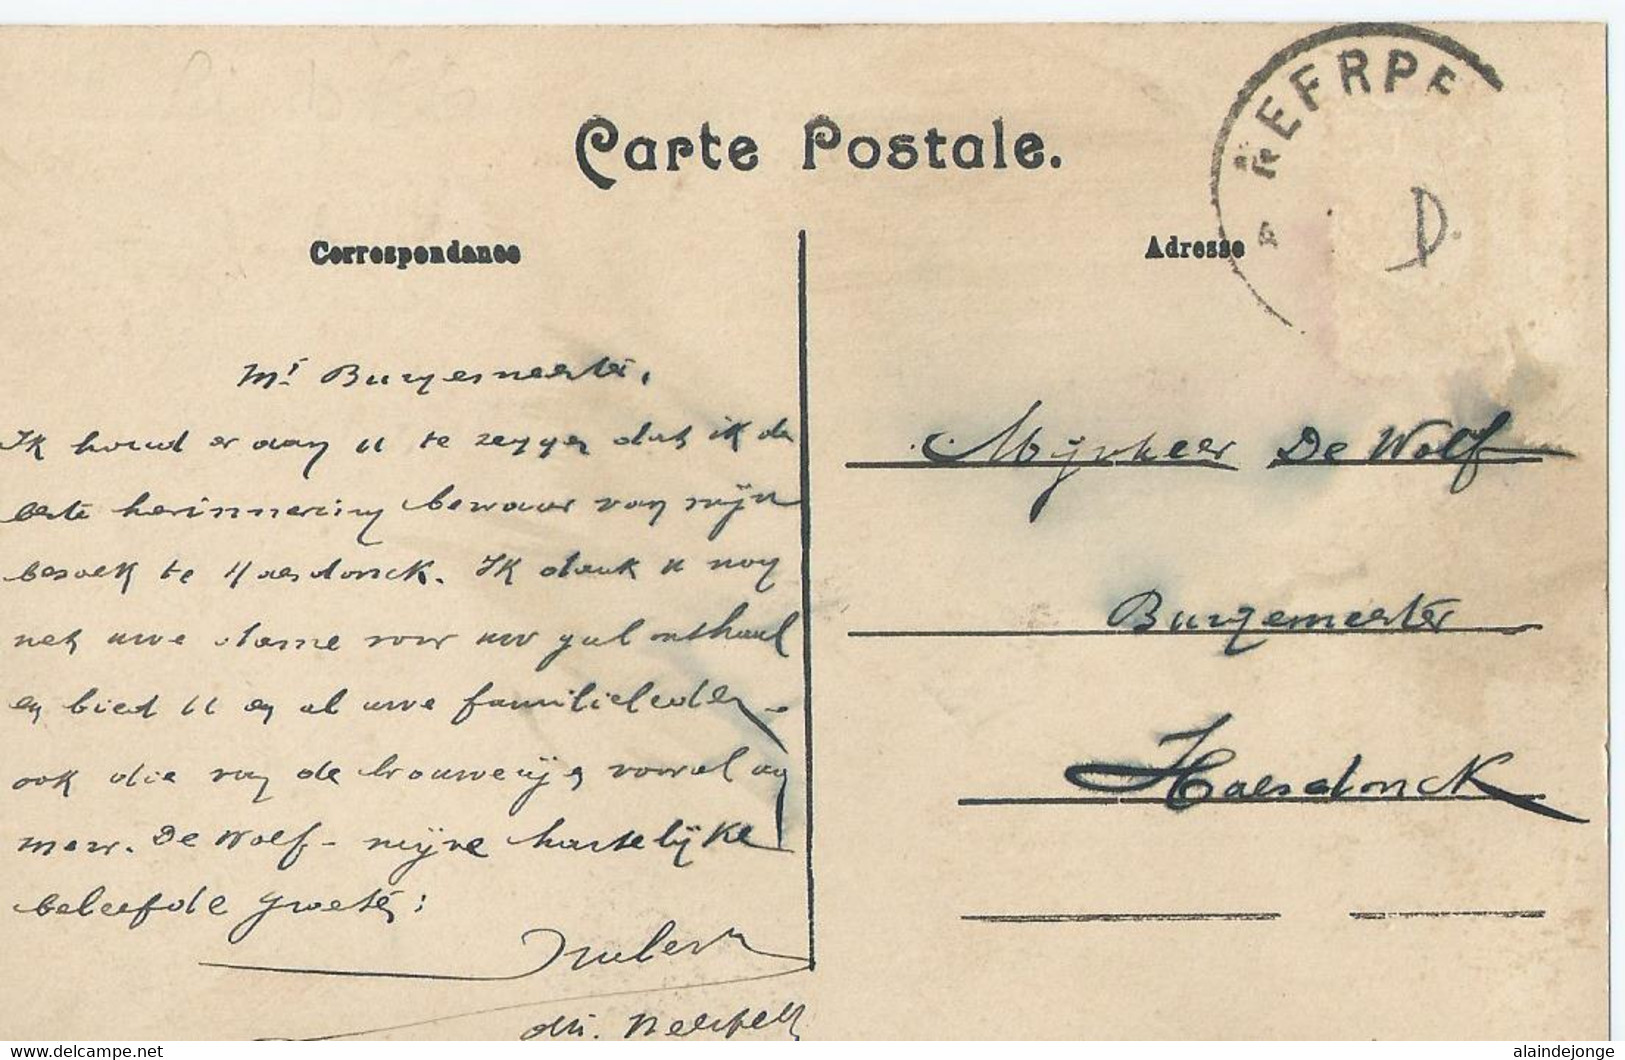 Carte Postale.
NEERPE
D.
Correspondance
Adresse
Mr Burgemeester,
Ik houd er aan u te zeggen dat ik de
beste herinnering bewaar van mijn
bezoek te Haesdonck. Ik dank u nog
net uwe dame voor uw gul onthaal
en bied u en al uwe familieleden -
ook die van de brouwerije vooral aan
mevr. De Wolf - mijne hartelijke
beleefde groeten:
dri. Neerpelt
Mijnheer De Wolf
Burgemeester
Haesdonck
www.delcampe.net
alaindejonge